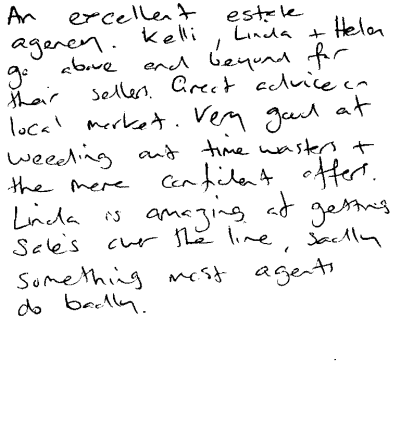 An excellent estate
agency. Kelli, Linda + Helen
go above and beyond for
their sellers. Great advice on
local market. Very good at
weeding out time wasters +
the more confident offers.
Linda is amazing at getting
Sales over the line, sadly
something most agents
do badly.